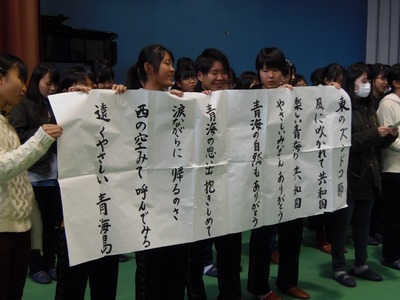 東のズンドコ節
風に吹かれて共和国
楽しい青海が共和国
やさしいみなさんありがとう
青海の自然もありがとう
青海の思出抱きしめて
涙ながらに 帰るのさ
西の空みて 呼んでみる
遠くやさしい 青海島